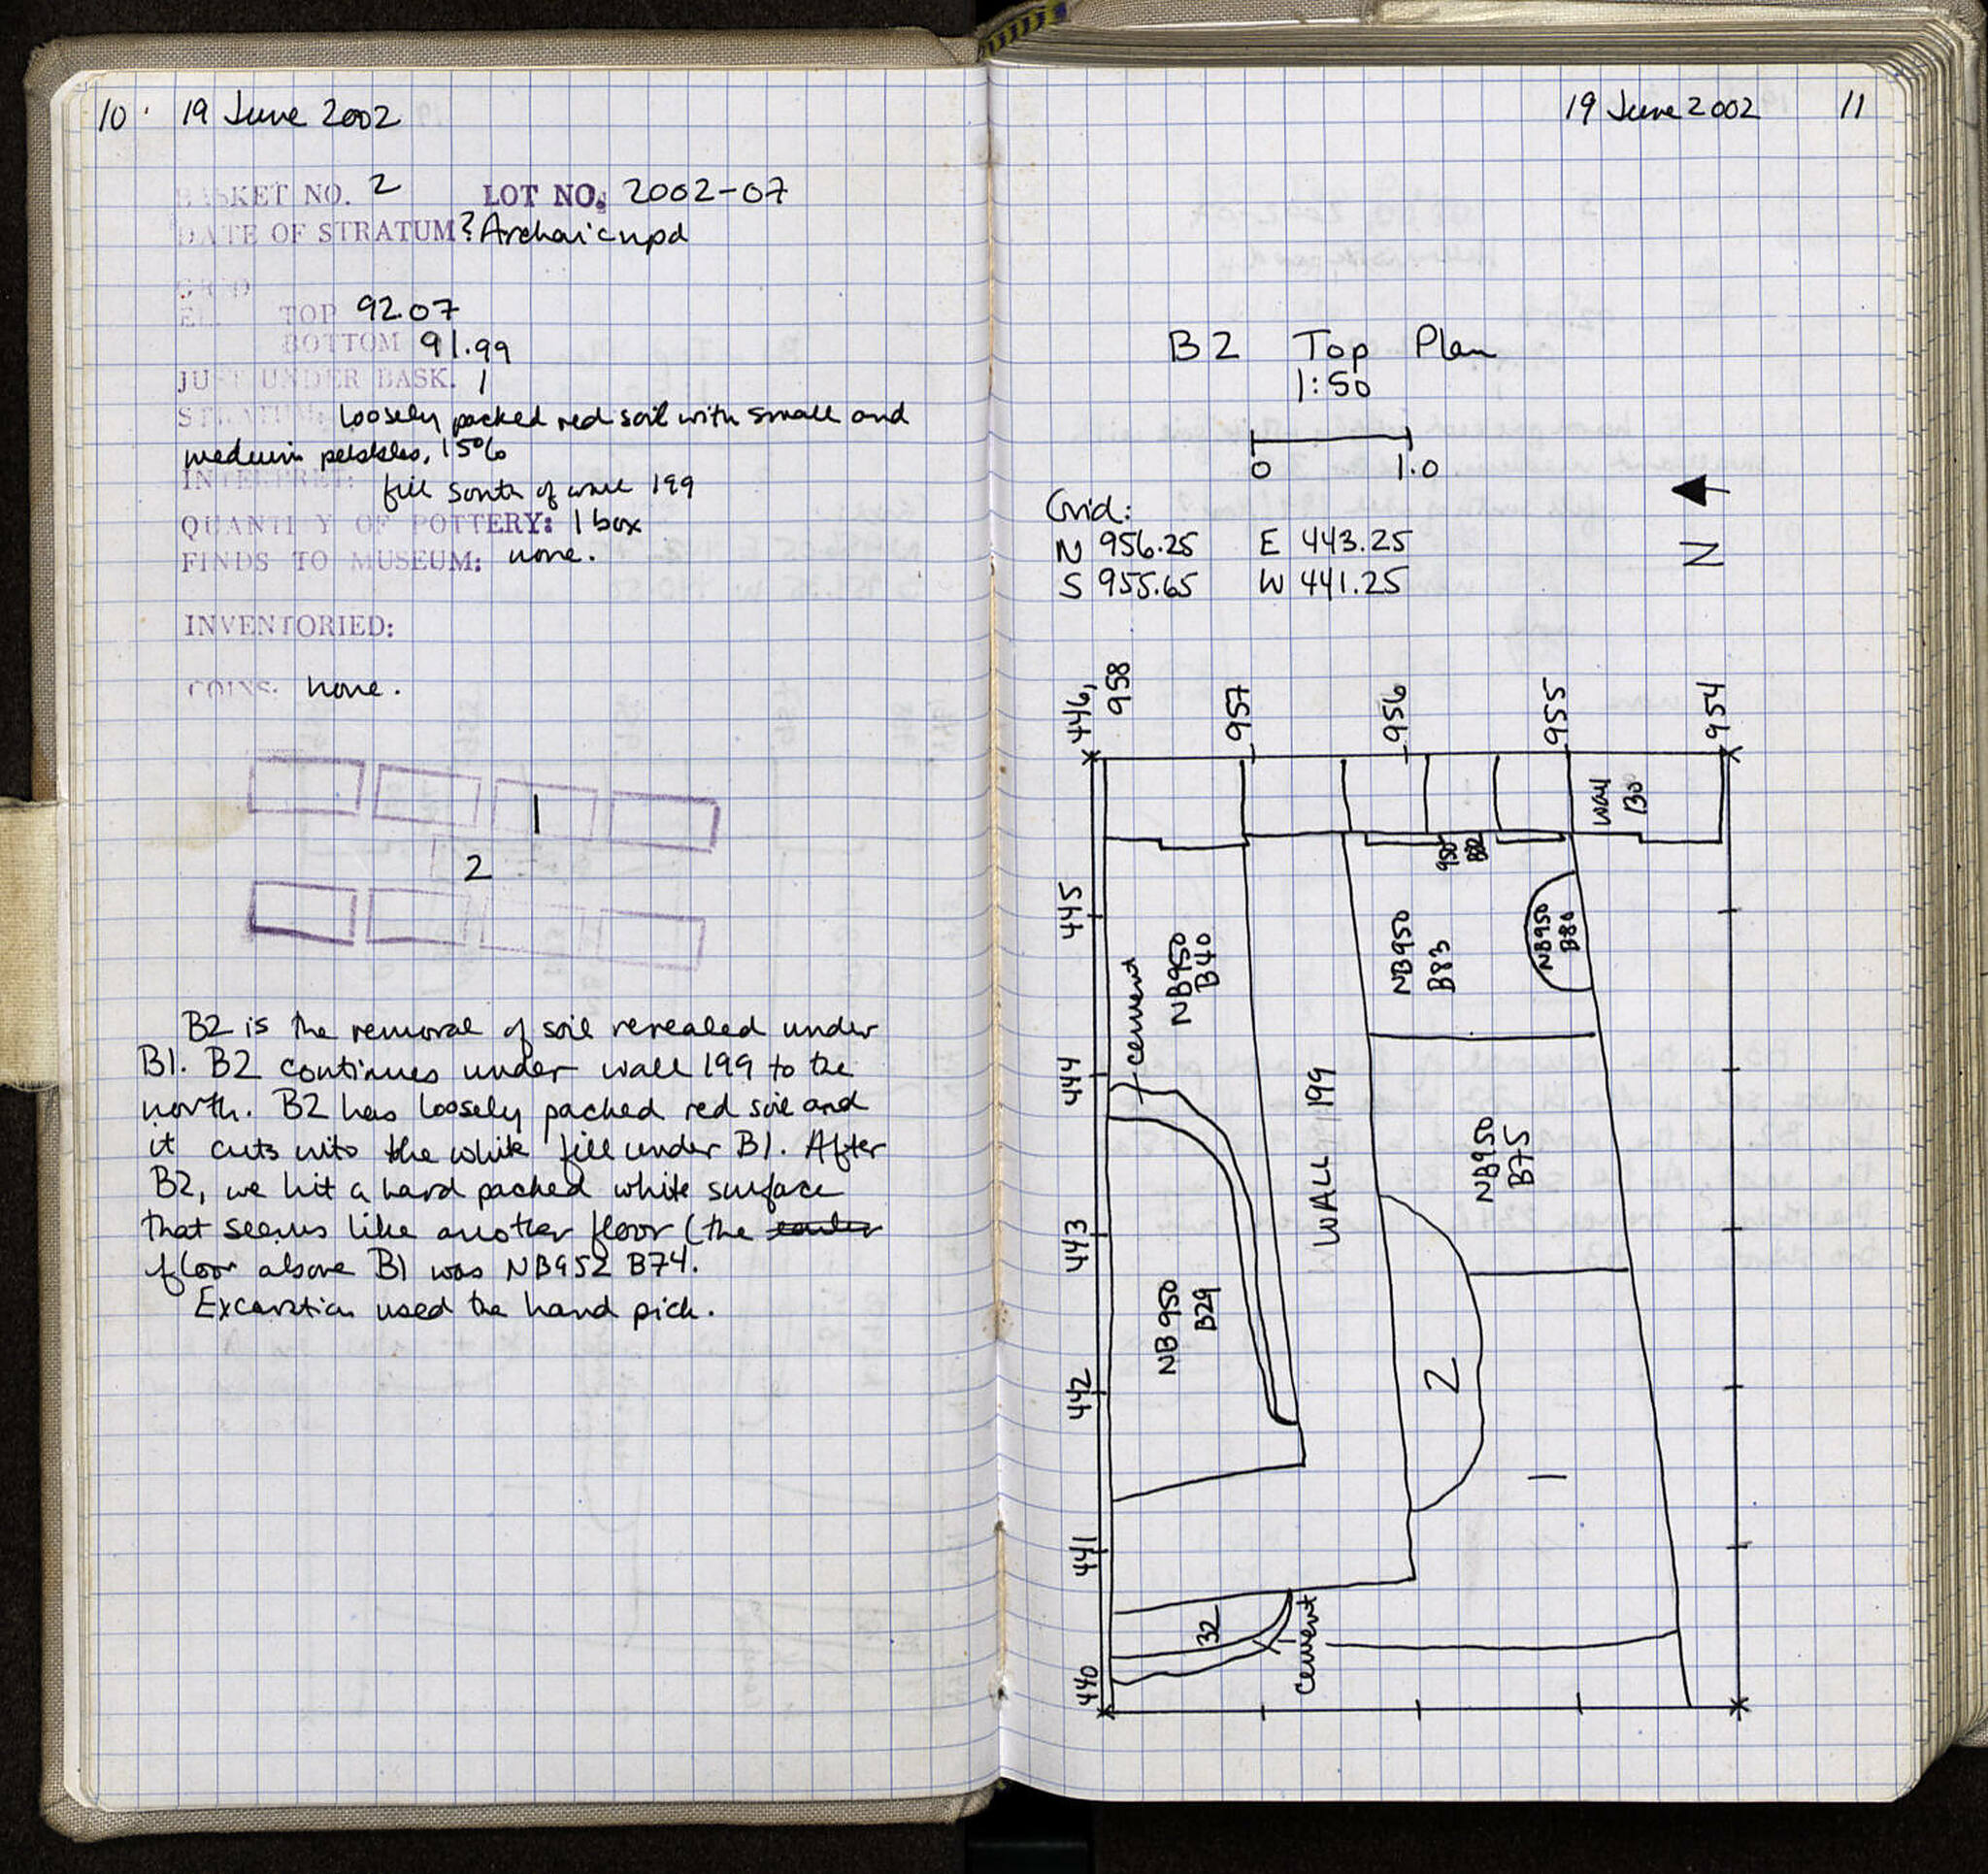 10 19 June 2002
BASKET NO. 2 LOT NO. 2002-07
DATE OF STRATUM ? Archaic npd
GRID
EL. TOP 92.07
BOTTOM 91.99
JUST UNDER BASK. 1
STRATUM: loosely packed red soil with small and
medium pebbles, 15%
INTERPRET: fill south of wall 199
QUANTITY OF POTTERY: 1 box
FINDS TO MUSEUM: none.
INVENTORIED:
COINS: none.
1
2
B2 is the removal of soil revealed under
B1. B2 continues under wall 199 to the
north. B2 has loosely packed red soil and
it cuts into the white fill under B1. After
B2, we hit a hard packed white surface
that seems like another floor (the earlier
floor above B1 was NB952 B74.
Excavation used the hand pick.
19 June 2002 11
B2 Top Plan
1:50
0 1.0
N
Grid:
N 956.25 E 443.25
S 955.65 W 441.25
446,
958
957
956
955
954
wall
130
950
B82
445
cement
NB950
B40
NB950
B83
NB950
B80
444
WALL 199
NB950
B75
443
NB950
B29
442
2
1
441
32
cement
440